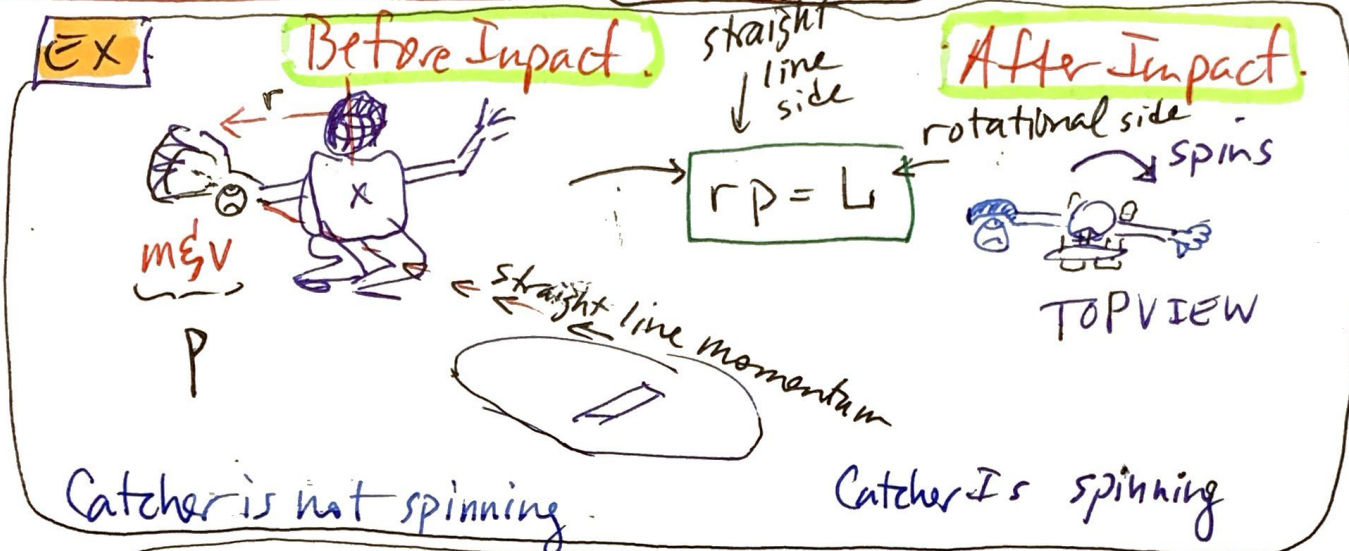 EX
Before Impact.
straight
line
side
After Impact.
r
rotational side
spins
x
rp = L
m & v
straight line momentum
P
TOPVIEW
Catcher is not spinning.
Catcher Is spinning